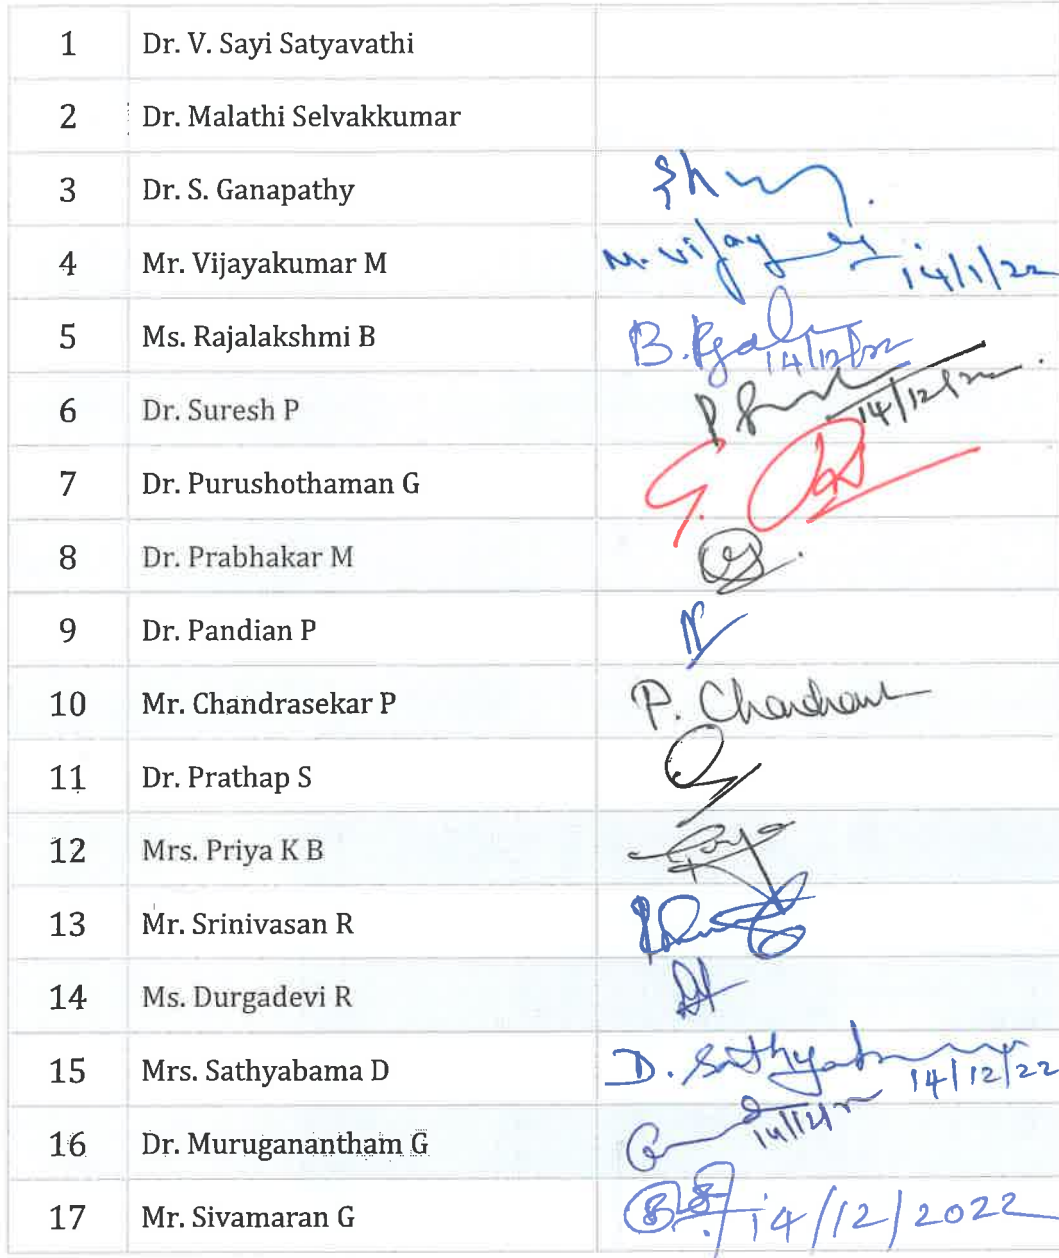 1 Dr. V. Sayi Satyavathi
2 Dr. Malathi Selvakkumar
3 Dr. S. Ganapathy
4 Mr. Vijayakumar M M. Vijay 14/1/22
5 Ms. Rajalakshmi B B. 14/12/22
6 Dr. Suresh P P 14/12/22
7 Dr. Purushothaman G G.
8 Dr. Prabhakar M
9 Dr. Pandian P
10 Mr. Chandrasekar P P.
11 Dr. Prathap S
12 Mrs. Priya K B
13 Mr. Srinivasan R
14 Ms. Durgadevi R
15 Mrs. Sathyabama D D. Sathyabama 14/12/22
16 Dr. Muruganantham G
17 Mr. Sivamaran G 14/12/2022